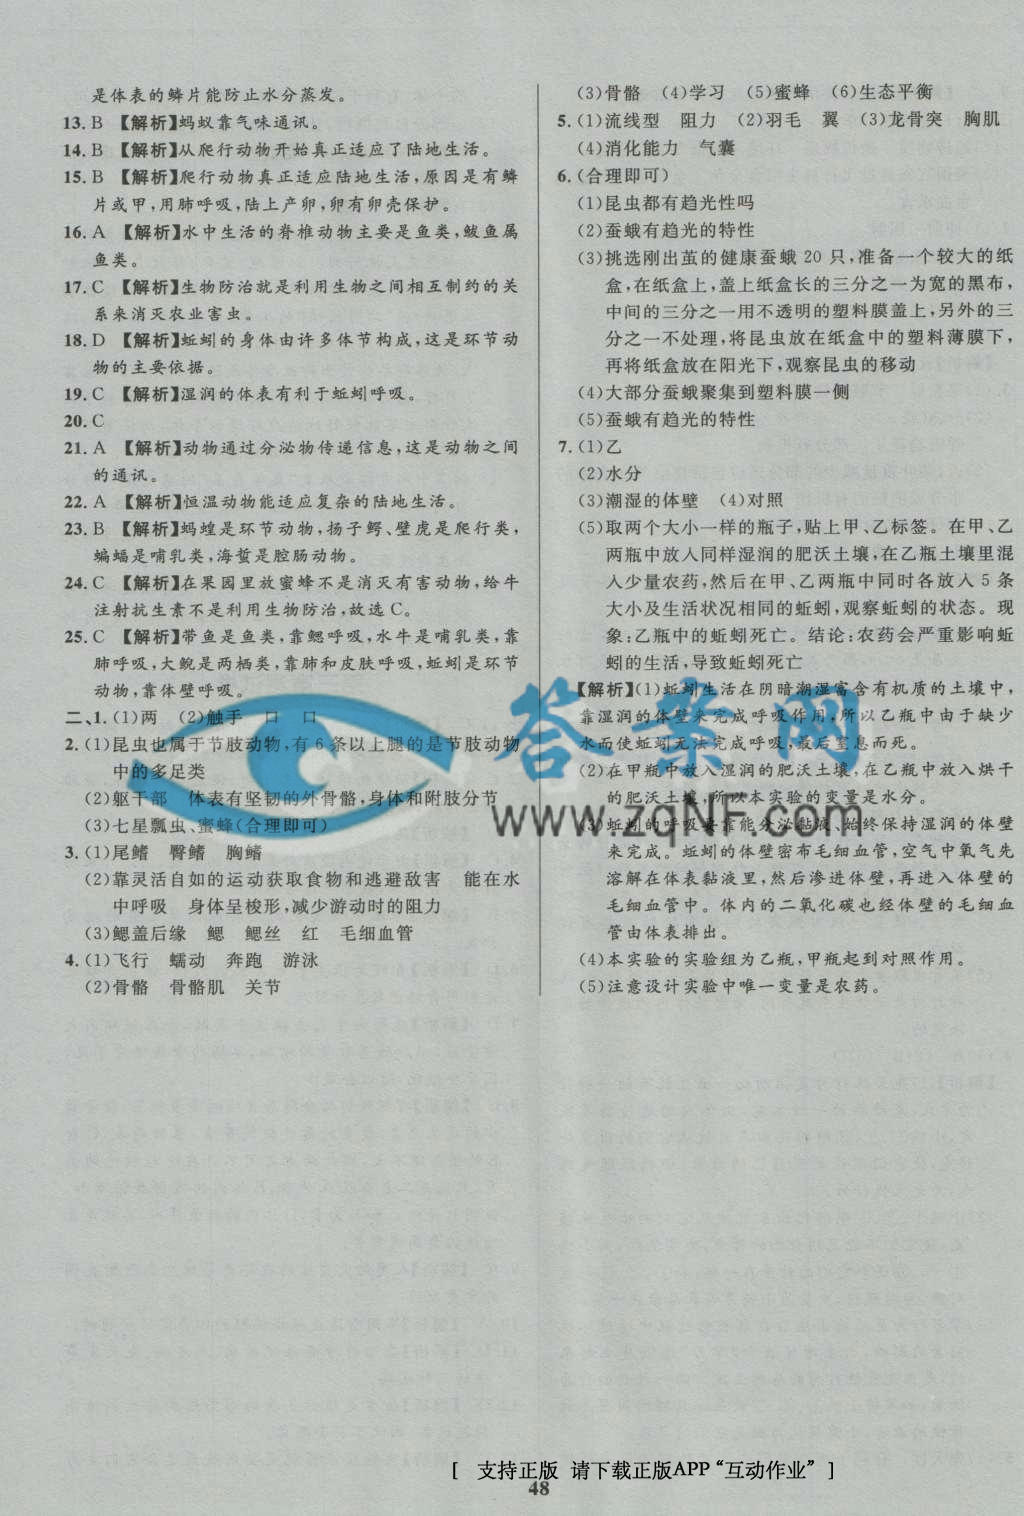 是体表的鳞片能防止水分蒸发。
13. B 【解析】蚂蚁靠气味通讯。
14. B 【解析】从爬行动物开始真正适应了陆地生活。
15. B 【解析】爬行动物真正适应陆地生活,原因是有鳞
片或甲,用肺呼吸,陆上产卵,卵有卵壳保护。
16. A 【解析】水中生活的脊椎动物主要是鱼类,鲅鱼属
鱼类。
17. C 【解析】生物防治就是利用生物之间相互制约的关
系来消灭农业害虫。
18. D 【解析】蚯蚓的身体由许多体节构成,这是环节动
物的主要依据。
19. C 【解析】湿润的体表有利于蚯蚓呼吸。
20. C
21. A 【解析】动物通过分泌物传递信息,这是动物之间
的通讯。
22. A 【解析】恒温动物能适应复杂的陆地生活。
23. B 【解析】蚂蝗是环节动物,扬子鳄、壁虎是爬行类,
蝙蝠是哺乳类,海蜇是腔肠动物。
24. C 【解析】在果园里放蜜蜂不是消灭有害动物,给牛
注射抗生素不是利用生物防治,故选C。
25. C 【解析】带鱼是鱼类,靠鳃呼吸,水牛是哺乳类,靠
肺呼吸,大鲵是两栖类,靠肺和皮肤呼吸,蚯蚓是环节
动物,靠体壁呼吸。
二、1. (1)两 (2)触手 口 口
2. (1)昆虫也属于节肢动物,有6条以上腿的是节肢动物
中的多足类
(2)躯干部 体表有坚韧的外骨骼,身体和附肢分节
(3)七星瓢虫、蜜蜂(合理即可)
3. (1)尾鳍 臀鳍 胸鳍
(2)靠灵活自如的运动获取食物和逃避敌害 能在水
中呼吸 身体呈梭形,减少游动时的阻力
(3)鳃盖后缘 鳃 鳃丝 红 毛细血管
4. (1)飞行 蠕动 奔跑 游泳
(2)骨骼 骨骼肌 关节
(3)骨骼 (4)学习 (5)蜜蜂 (6)生态平衡
5. (1)流线型 阻力 (2)羽毛 翼 (3)龙骨突 胸肌
(4)消化能力 气囊
6. (合理即可)
(1)昆虫都有趋光性吗
(2)蚕蛾有趋光的特性
(3)挑选刚出茧的健康蚕蛾20只,准备一个较大的纸
盒,在纸盒上,盖上纸盒长的三分之一为宽的黑布,
中间的三分之一用不透明的塑料膜盖上,另外的三
分之一不处理,将昆虫放在纸盒中的塑料薄膜下,
再将纸盒放在阳光下,观察昆虫的移动
(4)大部分蚕蛾聚集到塑料膜一侧
(5)蚕蛾有趋光的特性
7. (1)乙
(2)水分
(3)潮湿的体壁 (4)对照
(5)取两个大小一样的瓶子,贴上甲、乙标签。在甲、乙
两瓶中放入同样湿润的肥沃土壤,在乙瓶土壤里混
入少量农药,然后在甲、乙两瓶中同时各放入5条
大小及生活状况相同的蚯蚓,观察蚯蚓的状态。现
象:乙瓶中的蚯蚓死亡。结论:农药会严重影响蚯
蚓的生活,导致蚯蚓死亡
【解析】(1)蚯蚓生活在阴暗潮湿富含有机质的土壤中,
靠湿润的体壁来完成呼吸作用,所以乙瓶中由于缺少
水而使蚯蚓无法完成呼吸,最后窒息而死。
(2)在甲瓶中放入湿润的肥沃土壤,在乙瓶中放入烘干
的肥沃土壤,所以本实验的变量是水分。
(3)蚯蚓的呼吸要靠能分泌黏液、始终保持湿润的体壁
来完成。蚯蚓的体壁密布毛细血管,空气中氧气先
溶解在体表黏液里,然后渗进体壁,再进入体壁的
毛细血管中。体内的二氧化碳也经体壁的毛细血
管由体表排出。
(4)本实验的实验组为乙瓶,甲瓶起到对照作用。
(5)注意设计实验中唯一变量是农药。
答案网
www.zqNF.com
[ 支持正版 请下载正版APP“互动作业” ]
48